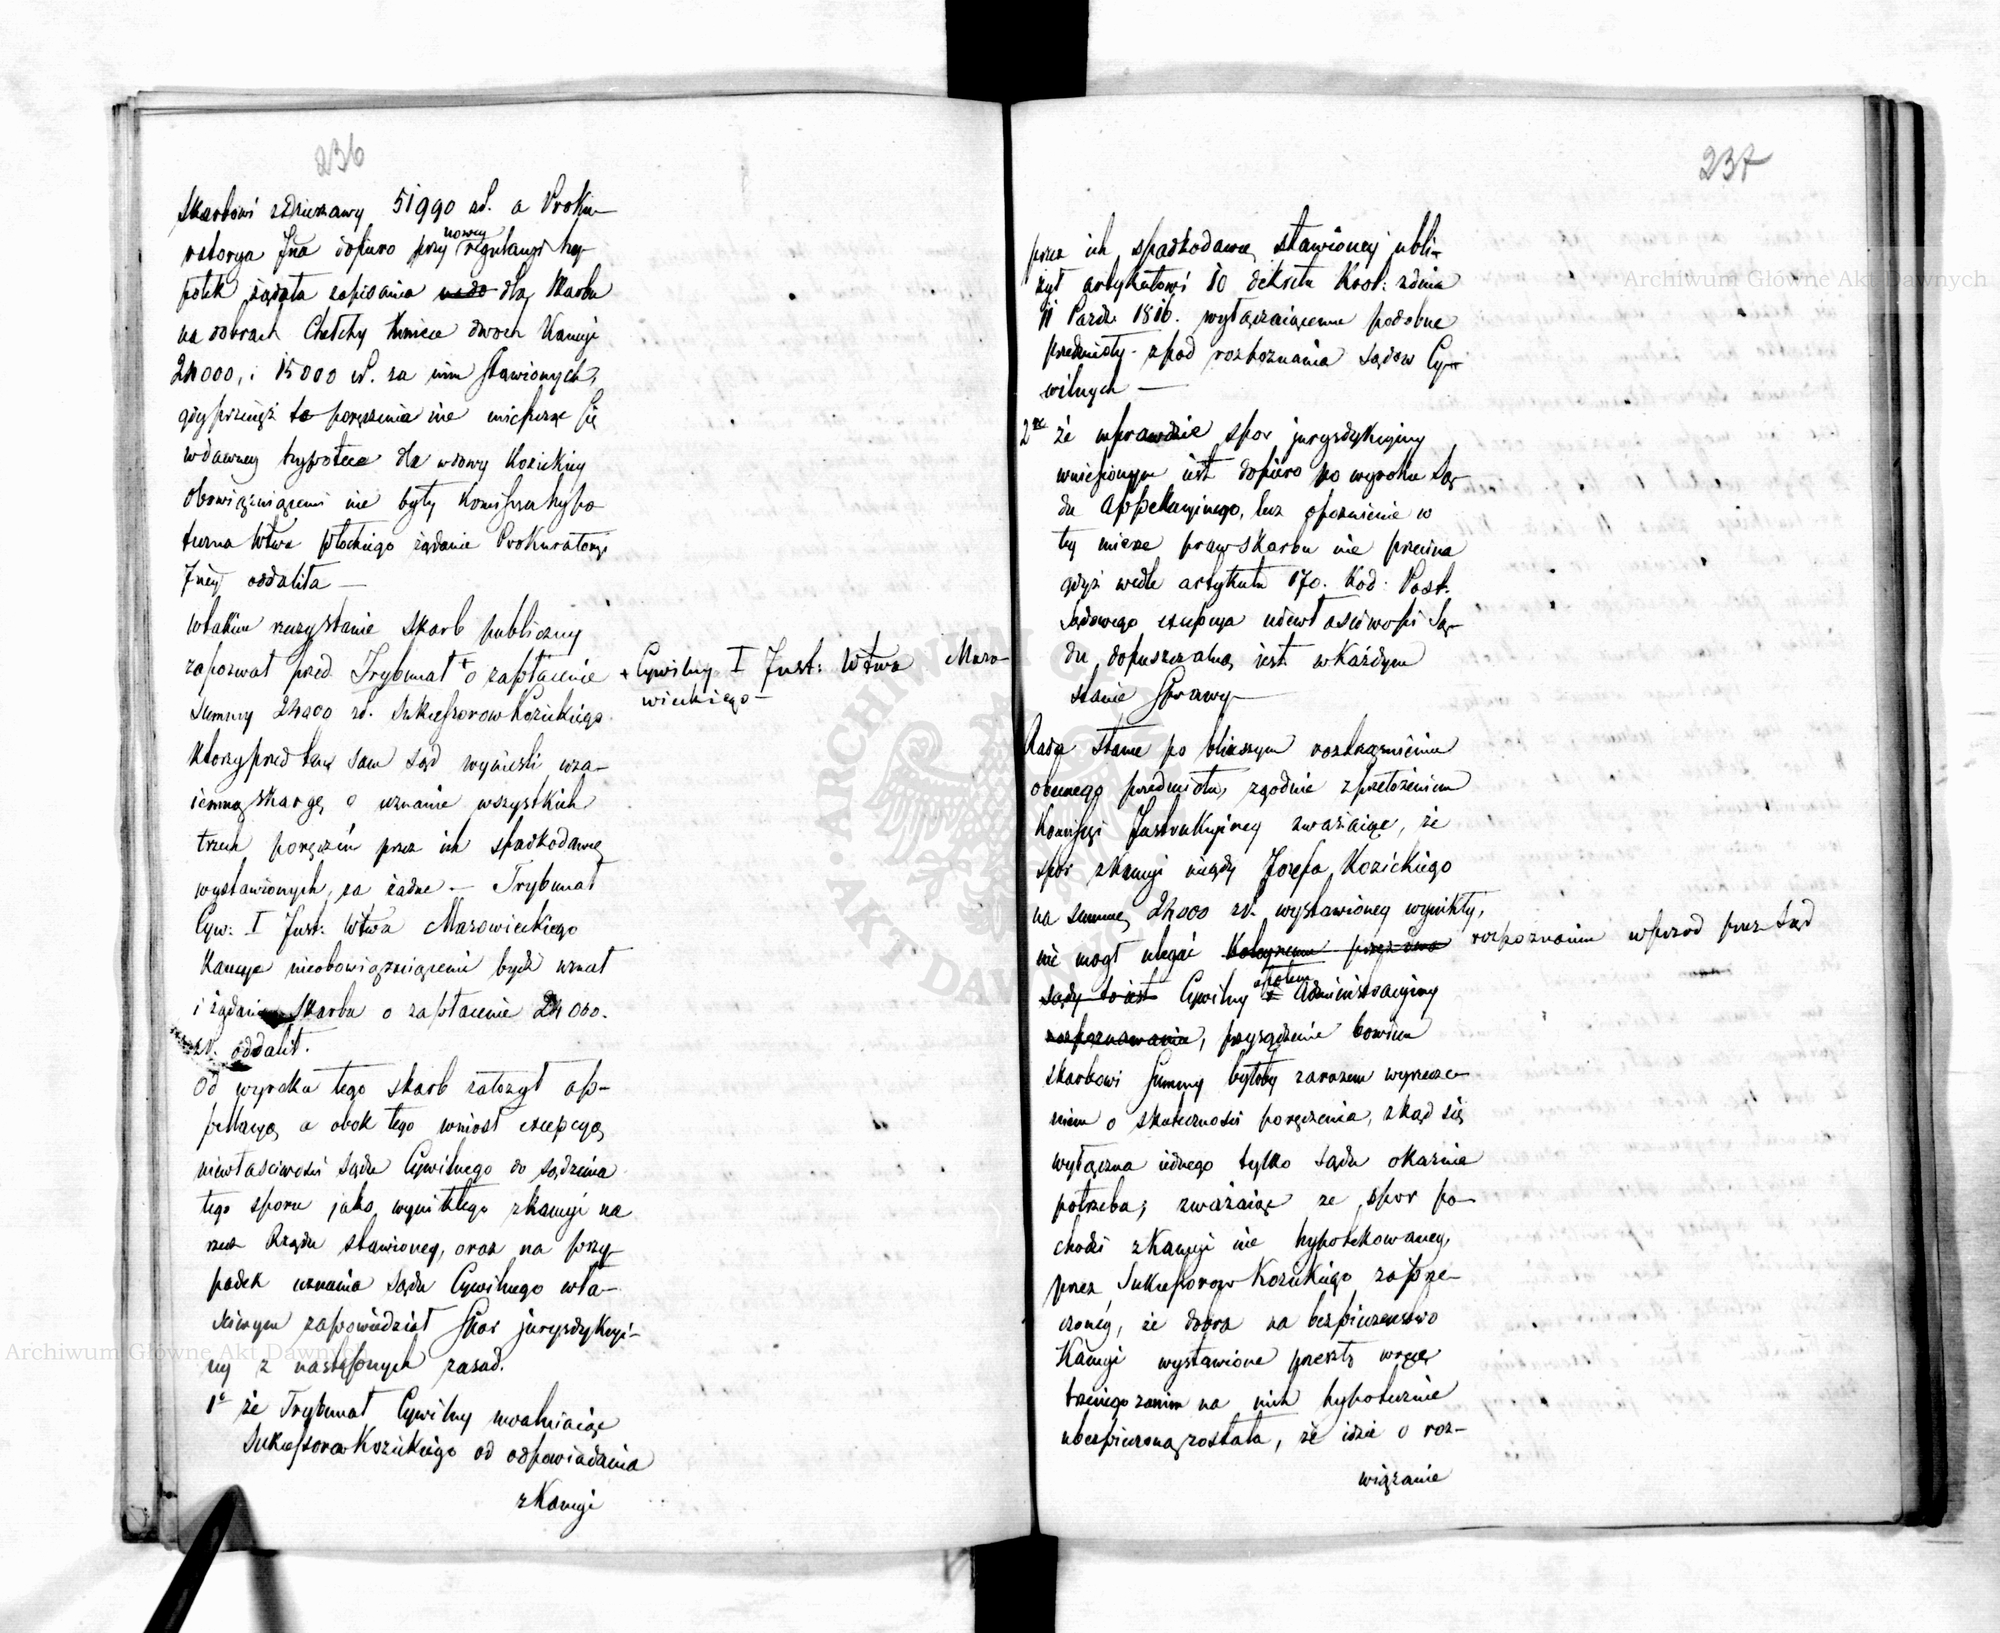 236
Skarbowi zdzierżawy 51990 zł. a Proku-
ratorya Jna dopiero przy nowey regulacyi hy-
potek żądała zapisania dla Skarbu
na dobrach Chełchy dwoch Kaucyi
24000, i 15000 zł. za nim stawionych,
gdy przecięż te poręczenia nie mieszcząc się
wdawney hypotece dla wdowy Kozickiey
obowiązuiącemi nie były Kommissya hypo
teczna Wtwa Płockiego żądanie Prokuratoryi
Jney oddaliła —
Wtakim rzeczy stanie Skarb publiczny
zapozwał przed Trybunał + o zapłacenie
+ Cywilny I Inst: Wtwa Mazo-
wieckiego —
Summy 24000 zł. Sukcessorow Kozickiego.
Ktorzy przed tenże sam Sąd wynieśli wza-
iemną skargę o uznanie wszystkich
trzech poręczeń przez ich spadkodawcę
wystawionych, za żadne — Trybunał
Cyw: I Inst: Wtwa Mazowieckiego
Kaucye nieobowiązuiącemi bydź uznał
i żądanie Skarbu o zapłacenie 24000.
zł. oddalił.
Od wyroku tego Skarb założył ap-
pellacyą a obok tego wniosł excepcyą
niewłaściwości Sądu Cywilnego do sądzenia
tego sporu jako wynikłego zkaucyi na
rzecz Rządu stawioney, oraz na przy-
padek uznania Sądu Cywilnego wła-
ściwym zapowiedział Spor jurysdykcyi-
ny z następnych zasad.
1e że Trybunał Cywilny uwalniaiąc
Sukcessorow Kozickiego od odpowiadania
zKaucyi
237
przez ich spadkodawcę stawioney ubli-
żył artykułowi 10 dekretu Krol: zdnia
Paźdz 1816. wyłączaiącemu podobne
przedmioty zpod rozpoznania Sądow Cy-
wilnych —
2re że wprawdzie spor jurysdykcyiny
wniesionym iest dopiero po wyroku Są-
du Appellacyinego, lecz opoznienie w
tey mierze praw Skarbu nie przecina
gdyż wedle artykułu 170. Kod: Post.
Sądowego excepcya niewłaściwości Są-
du dopuszczalną iest wkażdym
stanie Sprawy —
Rada Stanu po bliższym roztrząśnieniu
obecnego przedmiotu, zgodnie zprzełożeniem
Kommissyi Instrukcyiney zważaiąc, że
spor zkaucyi niegdy Jozefa Kozickiego
na summę 24000 zł. wystawioney wynikły,
nie mogł ulegać rozpoznaniu wprzod przez Sąd
Cywilny a potem Administracyiny
rozpoznawania, przysądzenie bowiem
Skarbowi Summy byłoby zarazem wyrzecze-
niem o skuteczności poręczenia, zkąd się
wyłączna iednego tylko Sądu okazuie
potrzeba; zważaiąc ze spor po-
chodzi zKaucyi nie hypotekowaney,
przez Sukcessorow Kozickiego zaprze-
czoney, że dobra na bezpieczenstwo
Kaucyi wystawione przeszły wręce
trzeciego zanim na nich hypotecznie
ubezpieczoną została, że idzie o roz-
wiązanie